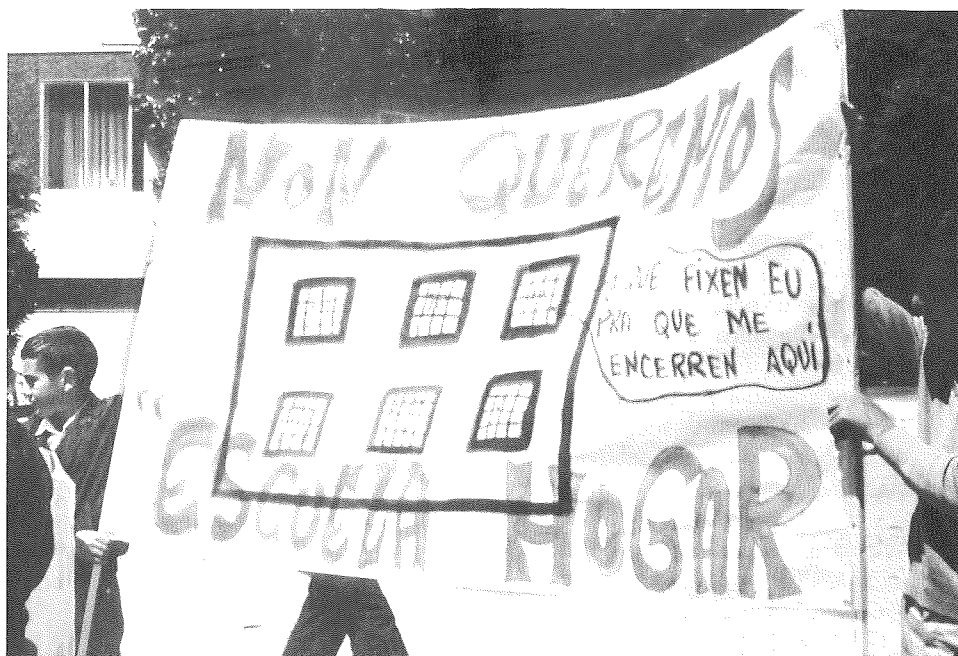 NON QUEREMOS
QUE FIXEN EU
PRA QUE ME
ENCERREN AQUÍ
"ESCOLA HOGAR